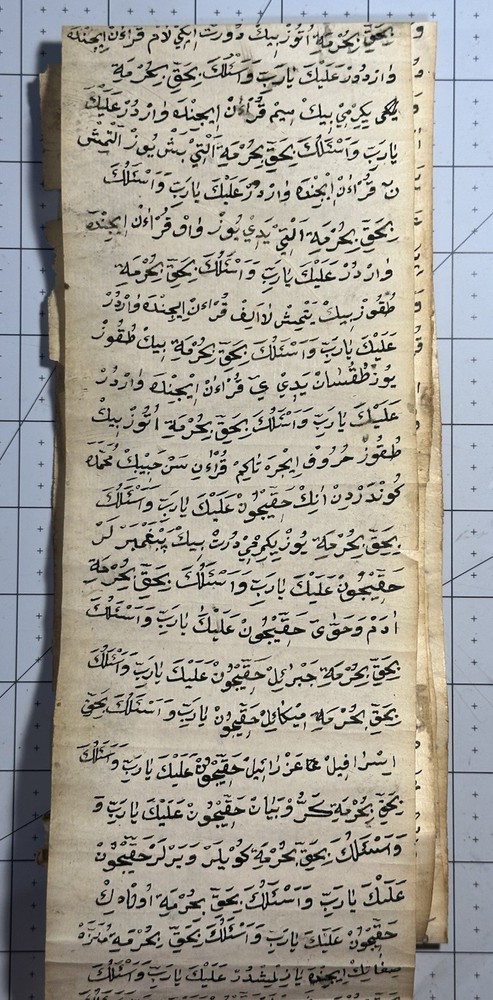 بِحَقِّ بِحُرْمَةِ اُتُوزْ بِيكْ دُورتْ اِيكِي لاَمْ قُرْاءَنْ اِيجِنْدَه
وَارْدُرْ عَلَيْكَ يَارَبِّ وَاَسْئَلُكَ بِحَقِّ بِحُرْمَةِ
يِكِرْمِي بِيكْ مِيمْ قُرْاءَنْ اِيجِنْدَه وَارْدُرْ عَلَيْكَ
يَارَبِّ وَاَسْئَلُكَ بِحَقِّ بِحُرْمَةِ اَلْتِي بِشْ يُوزْ اَلْتْمِشْ
قُرْاءَنْ اِيجِنْدَه وَارْدُرْ عَلَيْكَ يَارَبِّ وَاَسْئَلُكَ
بِحَقِّ بِحُرْمَةِ اَلْتِي يَدِي يُوزْ وَاوْ قُرْاءَنْ اِيجِنْدَه
وَارْدُرْ عَلَيْكَ يَارَبِّ وَاَسْئَلُكَ بِحَقِّ بِحُرْمَةِ
طُقُوزْ بِيكْ يَتْمِشْ لاَاَلِفْ قُرْاءَنْ اِيجِنْدَه وَارْدُرْ
عَلَيْكَ يَارَبِّ وَاَسْئَلُكَ بِحَقِّ بِحُرْمَةِ بِيكْ طُقُوزْ
يُوزْ طُقْسَانْ يَدِي ىَ قُرْاءَنْ اِيجِنْدَه وَارْدُرْ
عَلَيْكَ يَارَبِّ وَاَسْئَلُكَ بِحَقِّ بِحُرْمَةِ اُتُوزْ بِيكْ
طُقُوزْ حُرُوفْ اِيجْرَه قُرْاءَنِ سَنْ حَبِيبِكْ مُحَمَّدَه
كُونْدَرْدِنْ اَنِكْ حَقِيچُونْ عَلَيْكَ يَارَبِّ وَاَسْئَلُكَ
بِحَقِّ بِحُرْمَةِ يُوزْ يِكِرْمِي دُرْتْ بِيكْ پِيْغَمْبَرْ لَرْ
حَقِيچُونْ عَلَيْكَ يَارَبِّ وَاَسْئَلُكَ بِحَقِّ بِحُرْمَةِ
اٰدَمْ وَحَوّٰى حَقِيچُونْ عَلَيْكَ يَارَبِّ وَاَسْئَلُكَ
بِحَقِّ بِحُرْمَةِ جَبْرَائِلْ حَقِيچُونْ عَلَيْكَ يَارَبِّ وَاَسْئَلُكَ
بِحَقِّ بِحُرْمَةِ مِيكَائِلْ حَقِيچُونْ يَارَبِّ وَاَسْئَلُكَ بِحَقِّ
اِسْرَافِيلْ عَزْرَائِيلْ حَقِيچُونْ عَلَيْكَ يَارَبِّ وَاَسْئَلُكَ
بِحَقِّ بِحُرْمَةِ كَرُّوبِيَانْ حَقِيچُونْ عَلَيْكَ يَارَبِّ وَ
وَاَسْئَلُكَ بِحَقِّ بِحُرْمَةِ كُويْلَرْ وَيَرْلَرْ حَقِيچُونْ
عَلَيْكَ يَارَبِّ وَاَسْئَلُكَ بِحَقِّ بِحُرْمَةِ
حَقِيچُونْ عَلَيْكَ يَارَبِّ وَاَسْئَلُكَ بِحَقِّ بِحُرْمَةِ
اِيجِنْدَه يَازِلْمِشْدُرْ عَلَيْكَ يَارَبِّ وَاَسْئَلُكَ